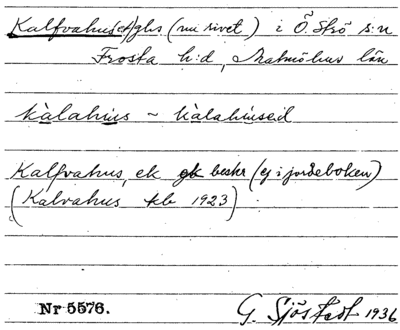 Kalfvahus(et) ghs (nu rivet) i Ö. Strö s:n
Frosta h:d, Malmöhus län
kàlahius ~ kàlahiused
Kalfvahus, ek beskr (ej i jordeboken)
(Kalvahus kb 1923)
Nr 5576.
G. Sjöstedt 1936